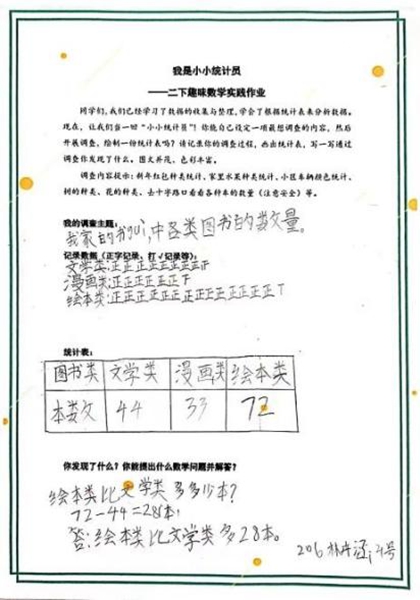 我是小小统计员
——二下趣味数学实践作业
同学们,我们已经学习了数据的收集与整理,学会了根据统计表来分析数据。
现在,让我们当一回“小小统计员”!你能自己设定一项最想调查的内容,然后
开展调查,绘制一份统计表吗?请记录你的调查过程,画出统计表,写一写通过
调查你发现了什么。图文并茂,色彩丰富。
调查内容提示:树车红包种类统计、家里水果种类统计、小区车辆颜色统计、
树的种类、花的种类、去十字路口看看各种车的数量(注意安全)等。
我的调查主题:
我家的书gui,中各类图书的数量。
记录数据(正字记录、打√记录等):
文学类:正正正正正正正正
漫画类:正正正正正正
绘本类:正正正正正正正正正正正正正正T
统计表:
图书类 文学类 漫画类 绘本类
本数 44 33 72
你发现了什么?你能提出什么数学问题并解答?
绘本类比文学类多多少本?
72-44=28(本)
答:绘本类比文学类多28本。
206 4号